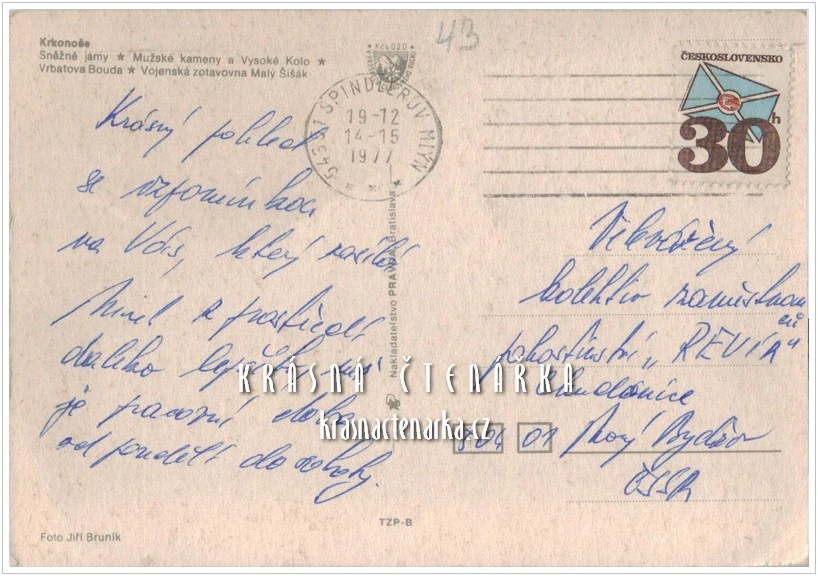 Krkonoše
Sněžné jámy ★ Mužské kameny a Vysoké Kolo ★
Vrbatova Bouda ★ Vojenská zotavovna Malý Šišák
43
Kčs 0,20
543 51 ŠPINDLERŮV MLÝN
19-12
14-15
1977
ČESKOSLOVENSKO
30h
Krásný pohled
se vzpomínkou
na Vás, který zasílá
z prostředí
daleko lepšího než
je pracovní doba
od pondělí do soboty.
Nakladatelství PRAVDA, Bratislava
Vážený
kolektiv zaměstnanců
pohostinství „REVÍR"
Chudonice
504 01 Nový Bydžov
ČSSR
KRÁSNÁ ČTENÁŘKA
krasnactenarka.cz
TZP-B
Foto Jiří Bruník